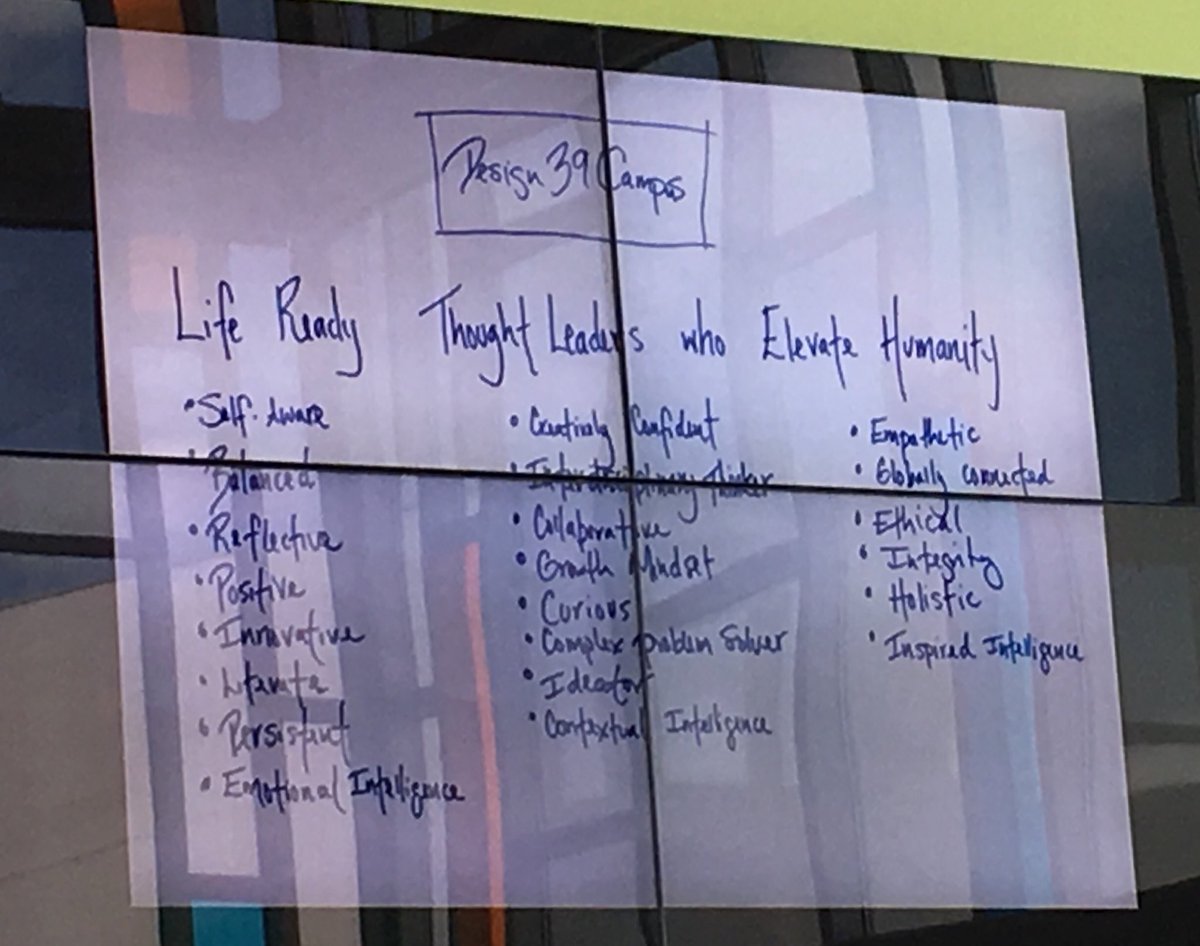 Design 39 Campus
Life Ready Thought Leaders who Elevate Humanity
• Self-Aware
• Balanced
• Reflective
• Positive
• Innovative
• Literate
• Persistent
• Emotional Intelligence
• Creatively Confident
• Interdisciplinary Thinker
• Collaborative
• Growth Mindset
• Curious
• Complex problem Solver
• Ideator
• Contextual Intelligence
• Empathetic
• Globally connected
• Ethical
• Integrity
• Holistic
• Inspired Intelligence